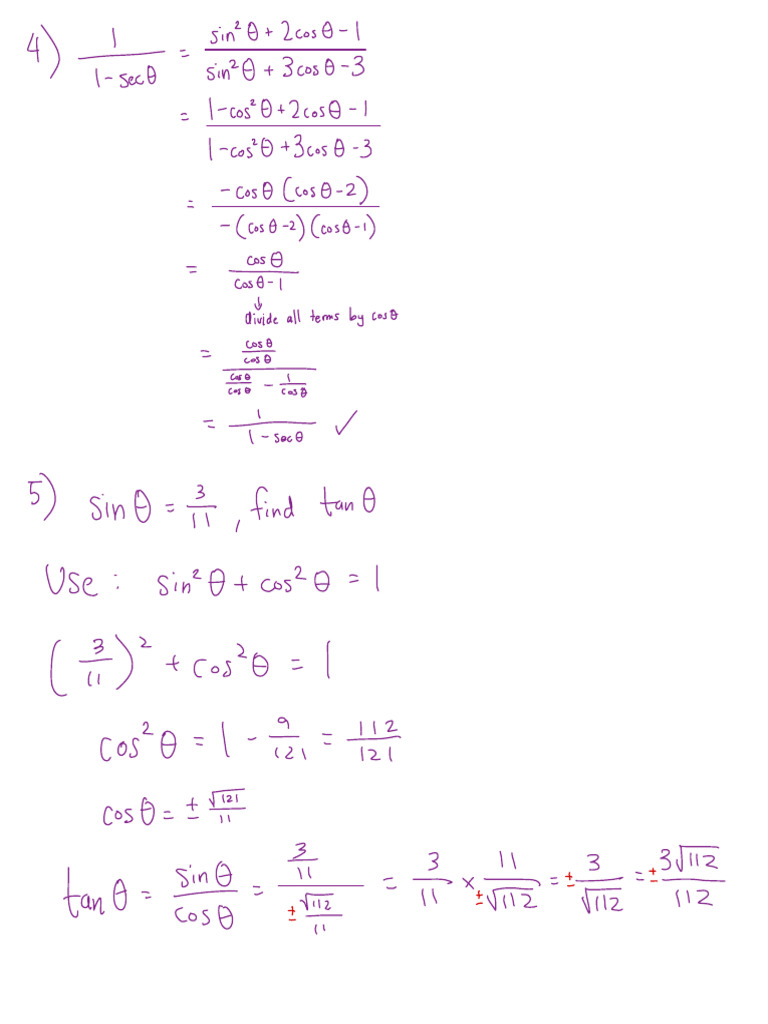 4) 1/(1-secθ) = (sin²θ + 2cosθ - 1)/(sin²θ + 3cosθ - 3)
= (1-cos²θ+2cosθ-1)/(1-cos²θ+3cosθ-3)
= (-cosθ(cosθ-2))/(-(cosθ-2)(cosθ-1))
= cosθ/(cosθ-1)
↓
divide all terms by cosθ
= (cosθ/cosθ)/(cosθ/cosθ - 1/cosθ)
= 1/(1-secθ) ✓
5) sinθ = 3/11, find tanθ
Use: sin²θ + cos²θ = 1
(3/11)² + cos²θ = 1
cos²θ = 1 - 9/121 = 112/121
cosθ = ± √121/11
tanθ = sinθ/cosθ = (3/11)/(± √112/11) = 3/11 × ± 11/√112 = ± 3/√112 = ± 3√112/112